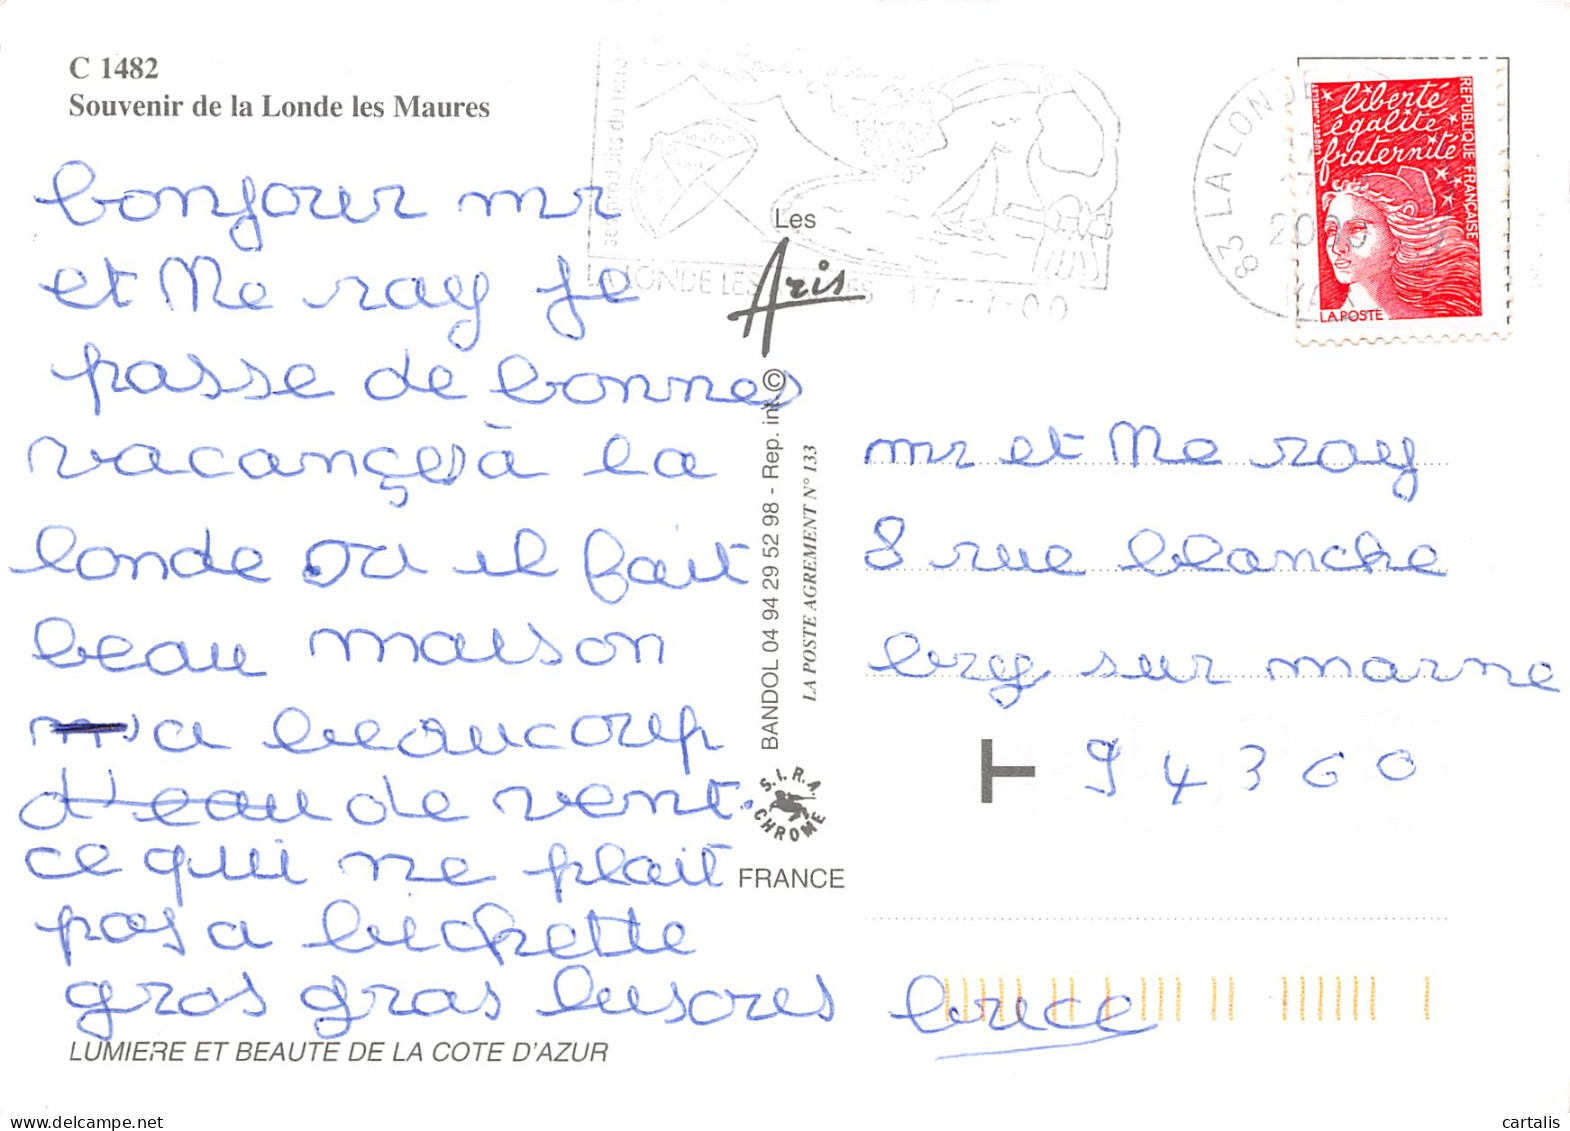 C 1482
Souvenir de la Londe les Maures
bonjour mr
et Me ray je
passe de bonnes
vacançes à la
londe ou il fait
beau maison
a beaucoup
d'eau de vent.
ce qui ne plait
pas a bichette
gros gras busores brice
LUMIERE ET BEAUTE DE LA COTE D'AZUR
Les
Aris
BANDOL 04 94 29 52 98 - Rep. int. ©
LA POSTE AGREMENT N° 133
S.I.R.A.
CHROME
FRANCE
LA LONDE LES MAURES 17-7-00
83 LA LONDE
liberté
égalité
fraternité
REPUBLIQUE FRANÇAISE
LA POSTE
mr et Me ray
8 rue blanche
bry sur marne
T 94360
cartalis.com